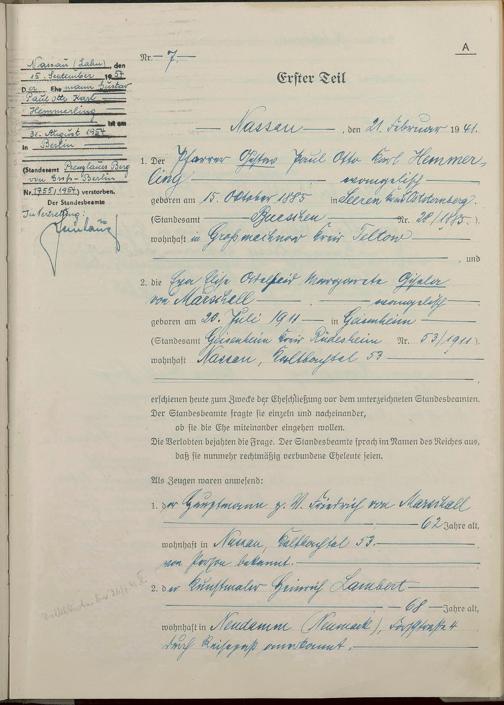 A
Nassau (Lahn) den
15. September 1957
Der Ehemann Gustav
Paul Otto Karl
Hemmerling
ist am
31. August 1954
in Berlin
(Standesamt Prenzlauer Berg
von Groß-Berlin
Nr. 1755/1954) verstorben.
Der Standesbeamte
In Vertretung:
Nr. 7
Erster Teil
Nassau, den 21. Februar 1941.
1. Der Pfarrer Gustav Paul Otto Karl Hemmer-
ling evangelisch
geboren am 15. Oktober 1885 in Seeren Kreis Oststernberg.
(Standesamt Buesten Nr. 28/1885.)
wohnhaft in Großmachnow Kreis Teltow
und
2. die Eva Elise Adelheid Margarete Gisela
von Marschall evangelisch
geboren am 20. Juli 1911 in Geisenheim
(Standesamt Geisenheim Kreis Rüdesheim Nr. 53/1911)
wohnhaft Nassau, Kaltbachtal 53
erschienen heute zum Zwecke der Eheschließung vor dem unterzeichneten Standesbeamten.
Der Standesbeamte fragte sie einzeln und nacheinander,
ob sie die Ehe miteinander eingehen wollen.
Die Verlobten bejahten die Frage. Der Standesbeamte sprach im Namen des Reiches aus,
daß sie nunmehr rechtmäßig verbundene Eheleute seien.
Als Zeugen waren anwesend:
1. der Hauptmann z. V. Friedrich von Marschall
62 Jahre alt,
wohnhaft in Nassau, Kaltbachtal 53.
von Person bekannt.
2. der Kunstmaler Heinrich Lambert
68 Jahre alt,
wohnhaft in Neudamm (Neumark), 4
durch Reisepaß anerkannt.